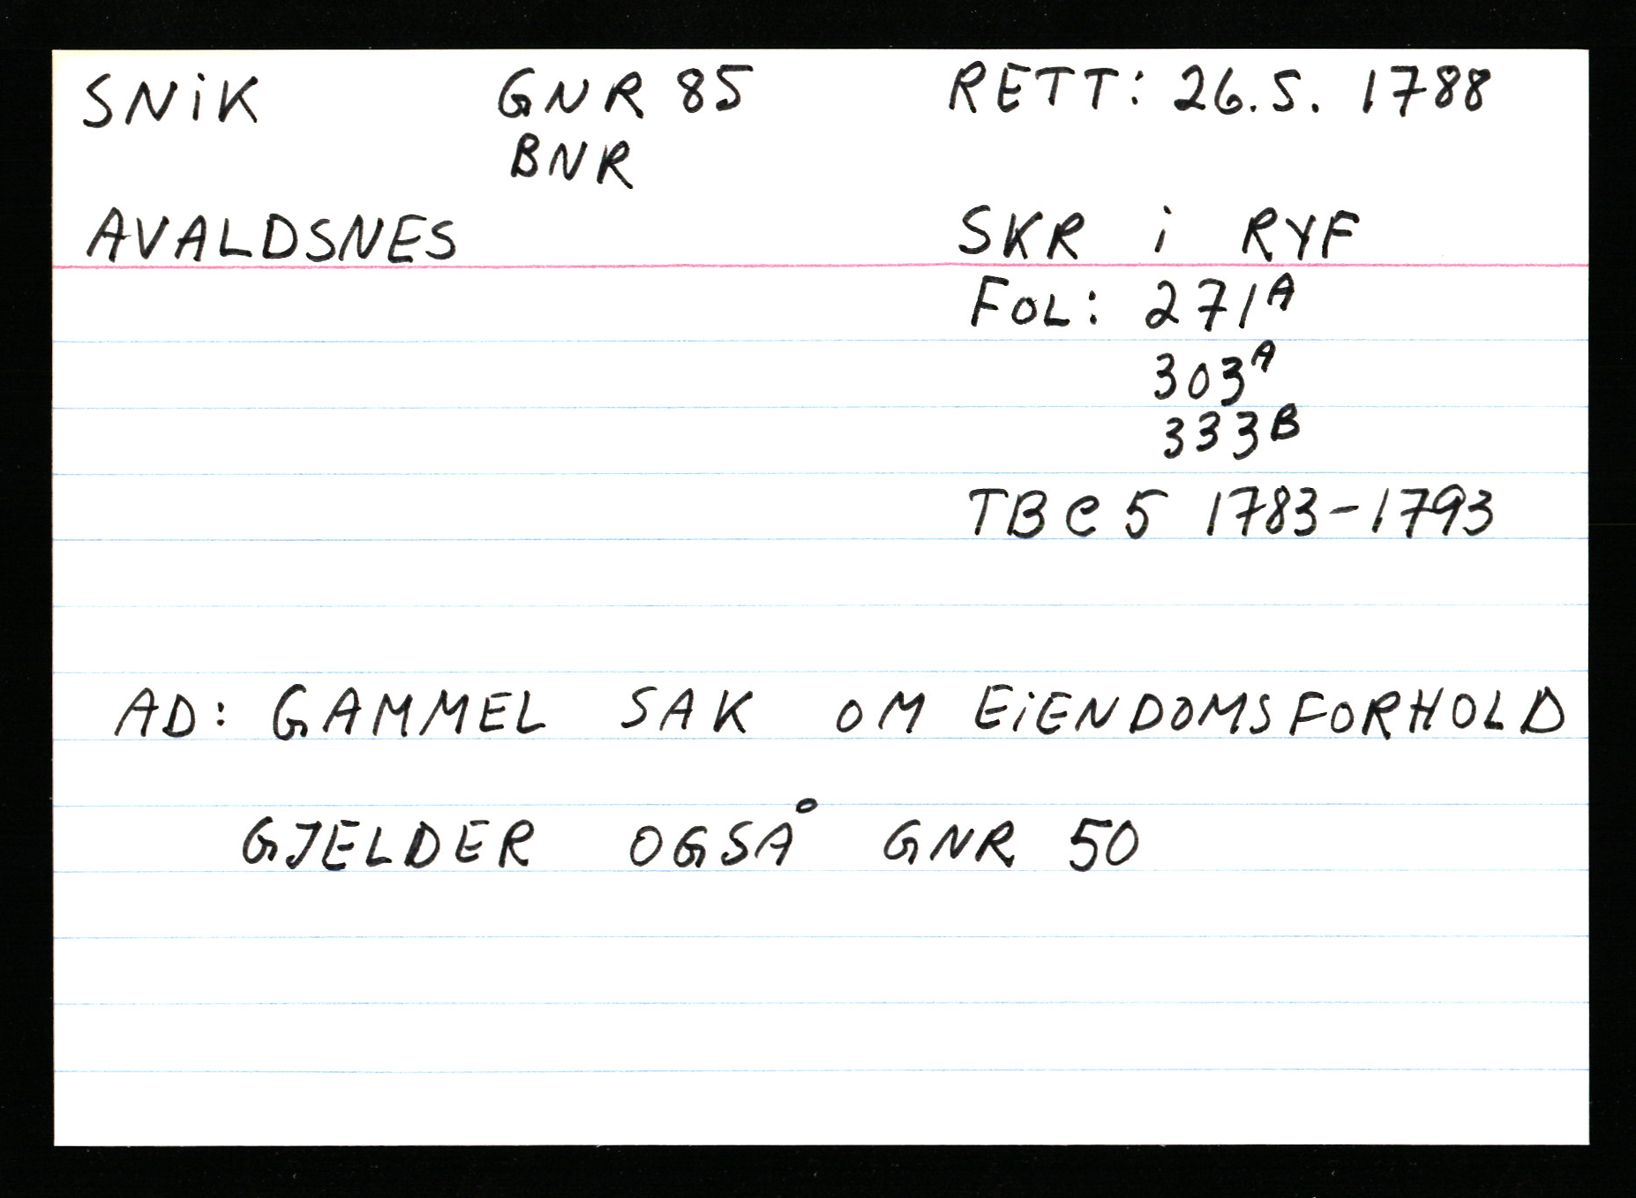 SNiK GNR 85 RETT: 26.5. 1788
BNR
AVALDSNES SKR i RYF
FOL: 271A
303A
333B
TB C 5 1783-1793
AD: GAMMEL SAK OM EiENDOMSFORHOLD
GJELDER OGSÅ GNR 50